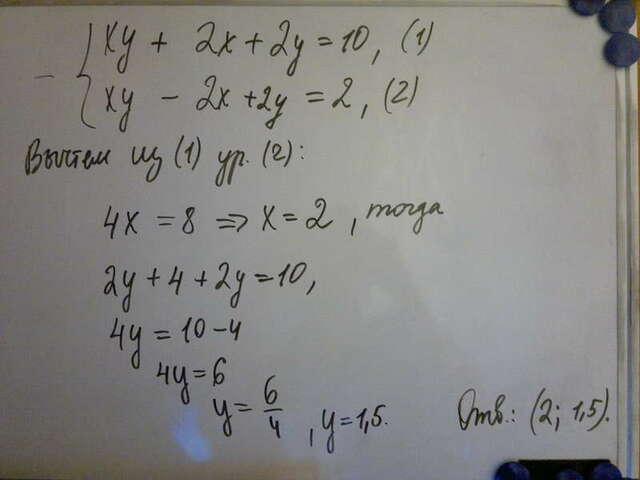 - { xy + 2x + 2y = 10, (1)
xy - 2x + 2y = 2, (2)
Вычтем из (1) ур. (2):
4x = 8 => x = 2, тогда
2y + 4 + 2y = 10,
4y = 10 - 4
4y = 6
y = 6/4, y = 1,5.
Отв.: (2; 1,5).